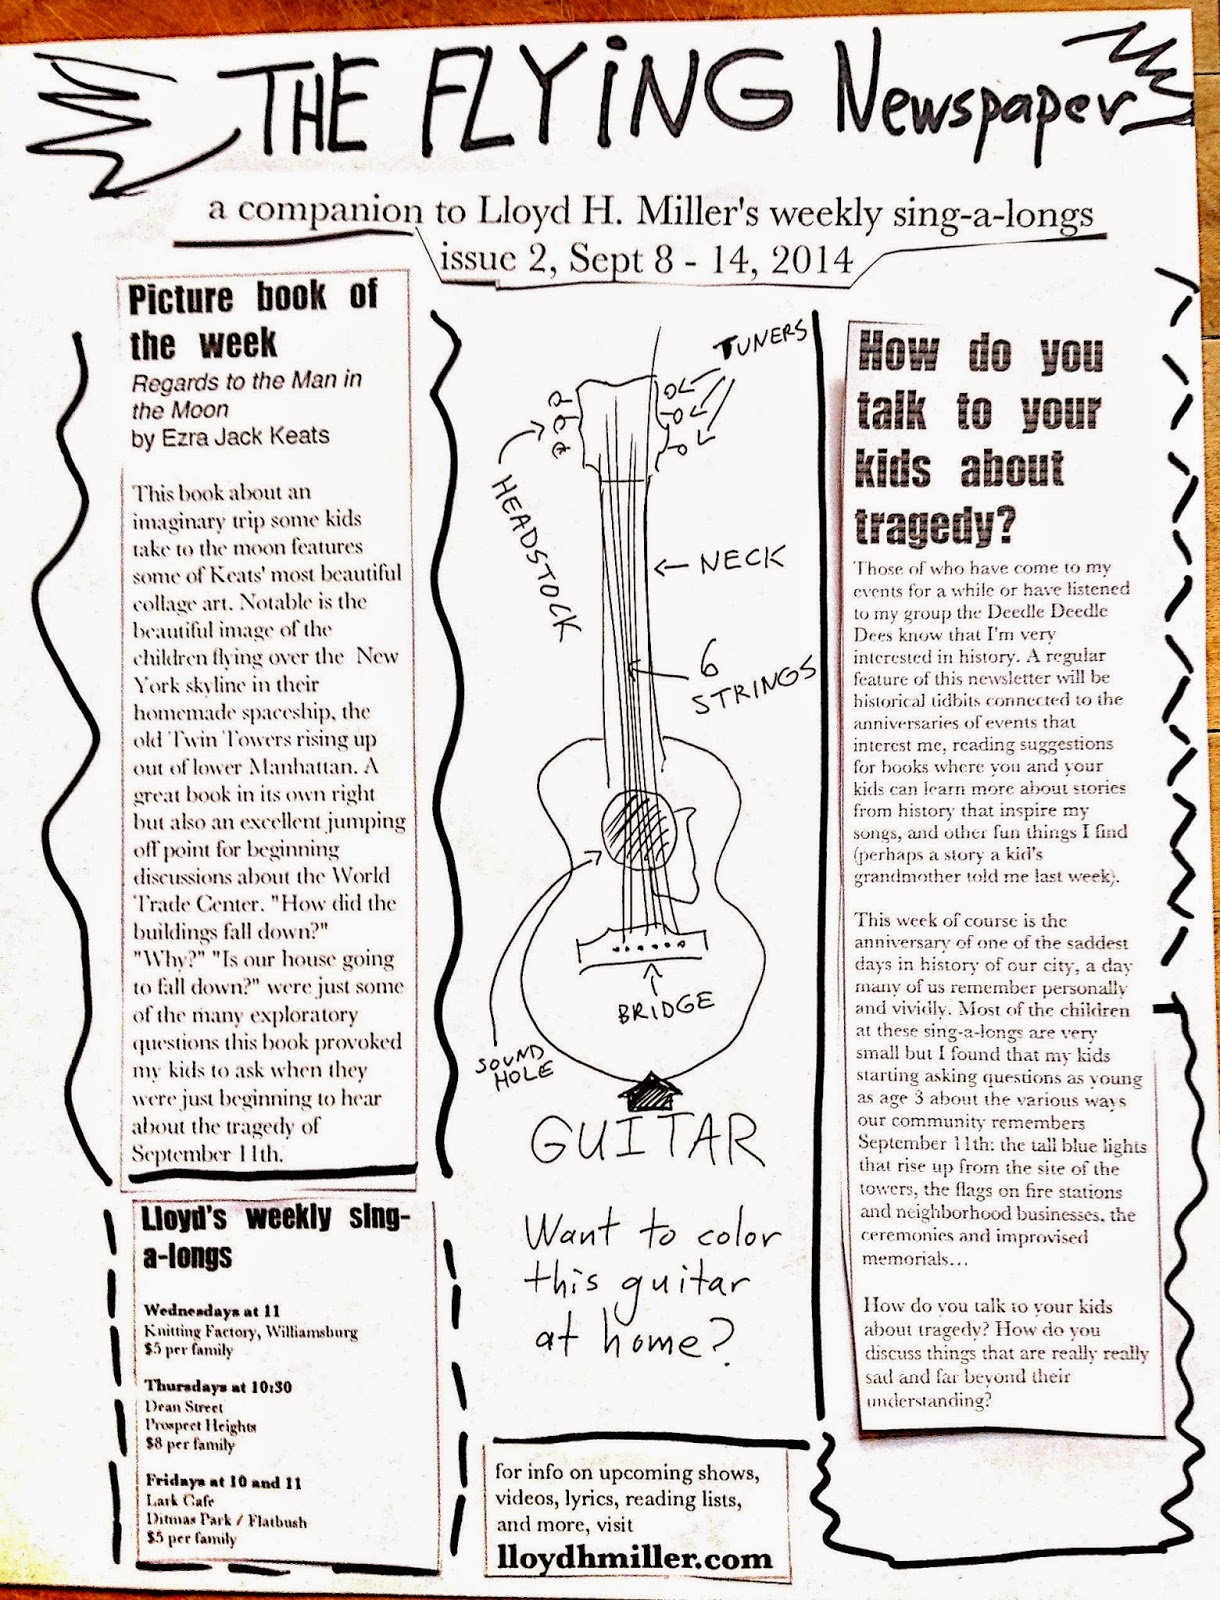 THE FLYiNG Newspaper
a companion to Lloyd H. Miller's weekly sing-a-longs
issue 2, Sept 8 - 14, 2014
Picture book of
the week
Regards to the Man in
the Moon
by Ezra Jack Keats
This book about an
imaginary trip some kids
take to the moon features
some of Keats' most beautiful
collage art. Notable is the
beautiful image of the
children flying over the New
York skyline in their
homemade spaceship, the
old Twin Towers rising up
out of lower Manhattan. A
great book in its own right
but also an excellent jumping
off point for beginning
discussions about the World
Trade Center. "How did the
buildings fall down?"
"Why?" "Is our house going
to fall down?" were just some
of the many exploratory
questions this book provoked
my kids to ask when they
were just beginning to hear
about the tragedy of
September 11th.
Lloyd's weekly sing-
a-longs
Wednesdays at 11
Knitting Factory, Williamsburg
$5 per family
Thursdays at 10:30
Dean Street
Prospect Heights
$8 per family
Fridays at 10 and 11
Lark Cafe
Ditmas Park / Flatbush
$5 per family
TUNERS
HEADSTOCK
NECK
6
STRINGS
BRIDGE
SOUND
HOLE
GUITAR
Want to color
this guitar
at home?
for info on upcoming shows,
videos, lyrics, reading lists,
and more, visit
lloydhmiller.com
How do you
talk to your
kids about
tragedy?
Those of who have come to my
events for a while or have listened
to my group the Deedle Deedle
Dees know that I'm very
interested in history. A regular
feature of this newsletter will be
historical tidbits connected to the
anniversaries of events that
interest me, reading suggestions
for books where you and your
kids can learn more about stories
from history that inspire my
songs, and other fun things I find
(perhaps a story a kid's
grandmother told me last week).
This week of course is the
anniversary of one of the saddest
days in history of our city, a day
many of us remember personally
and vividly. Most of the children
at these sing-a-longs are very
small but I found that my kids
starting asking questions as young
as age 3 about the various ways
our community remembers
September 11th: the tall blue lights
that rise up from the site of the
towers, the flags on fire stations
and neighborhood businesses, the
ceremonies and improvised
memorials...
How do you talk to your kids
about tragedy? How do you
discuss things that are really really
sad and far beyond their
understanding?